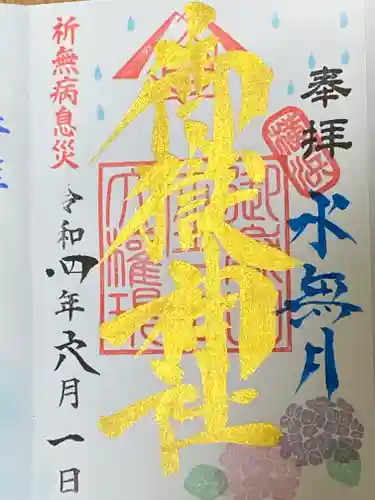 奉拝
水無月
御嶽神社
祈無病息災
令和四年六月一日